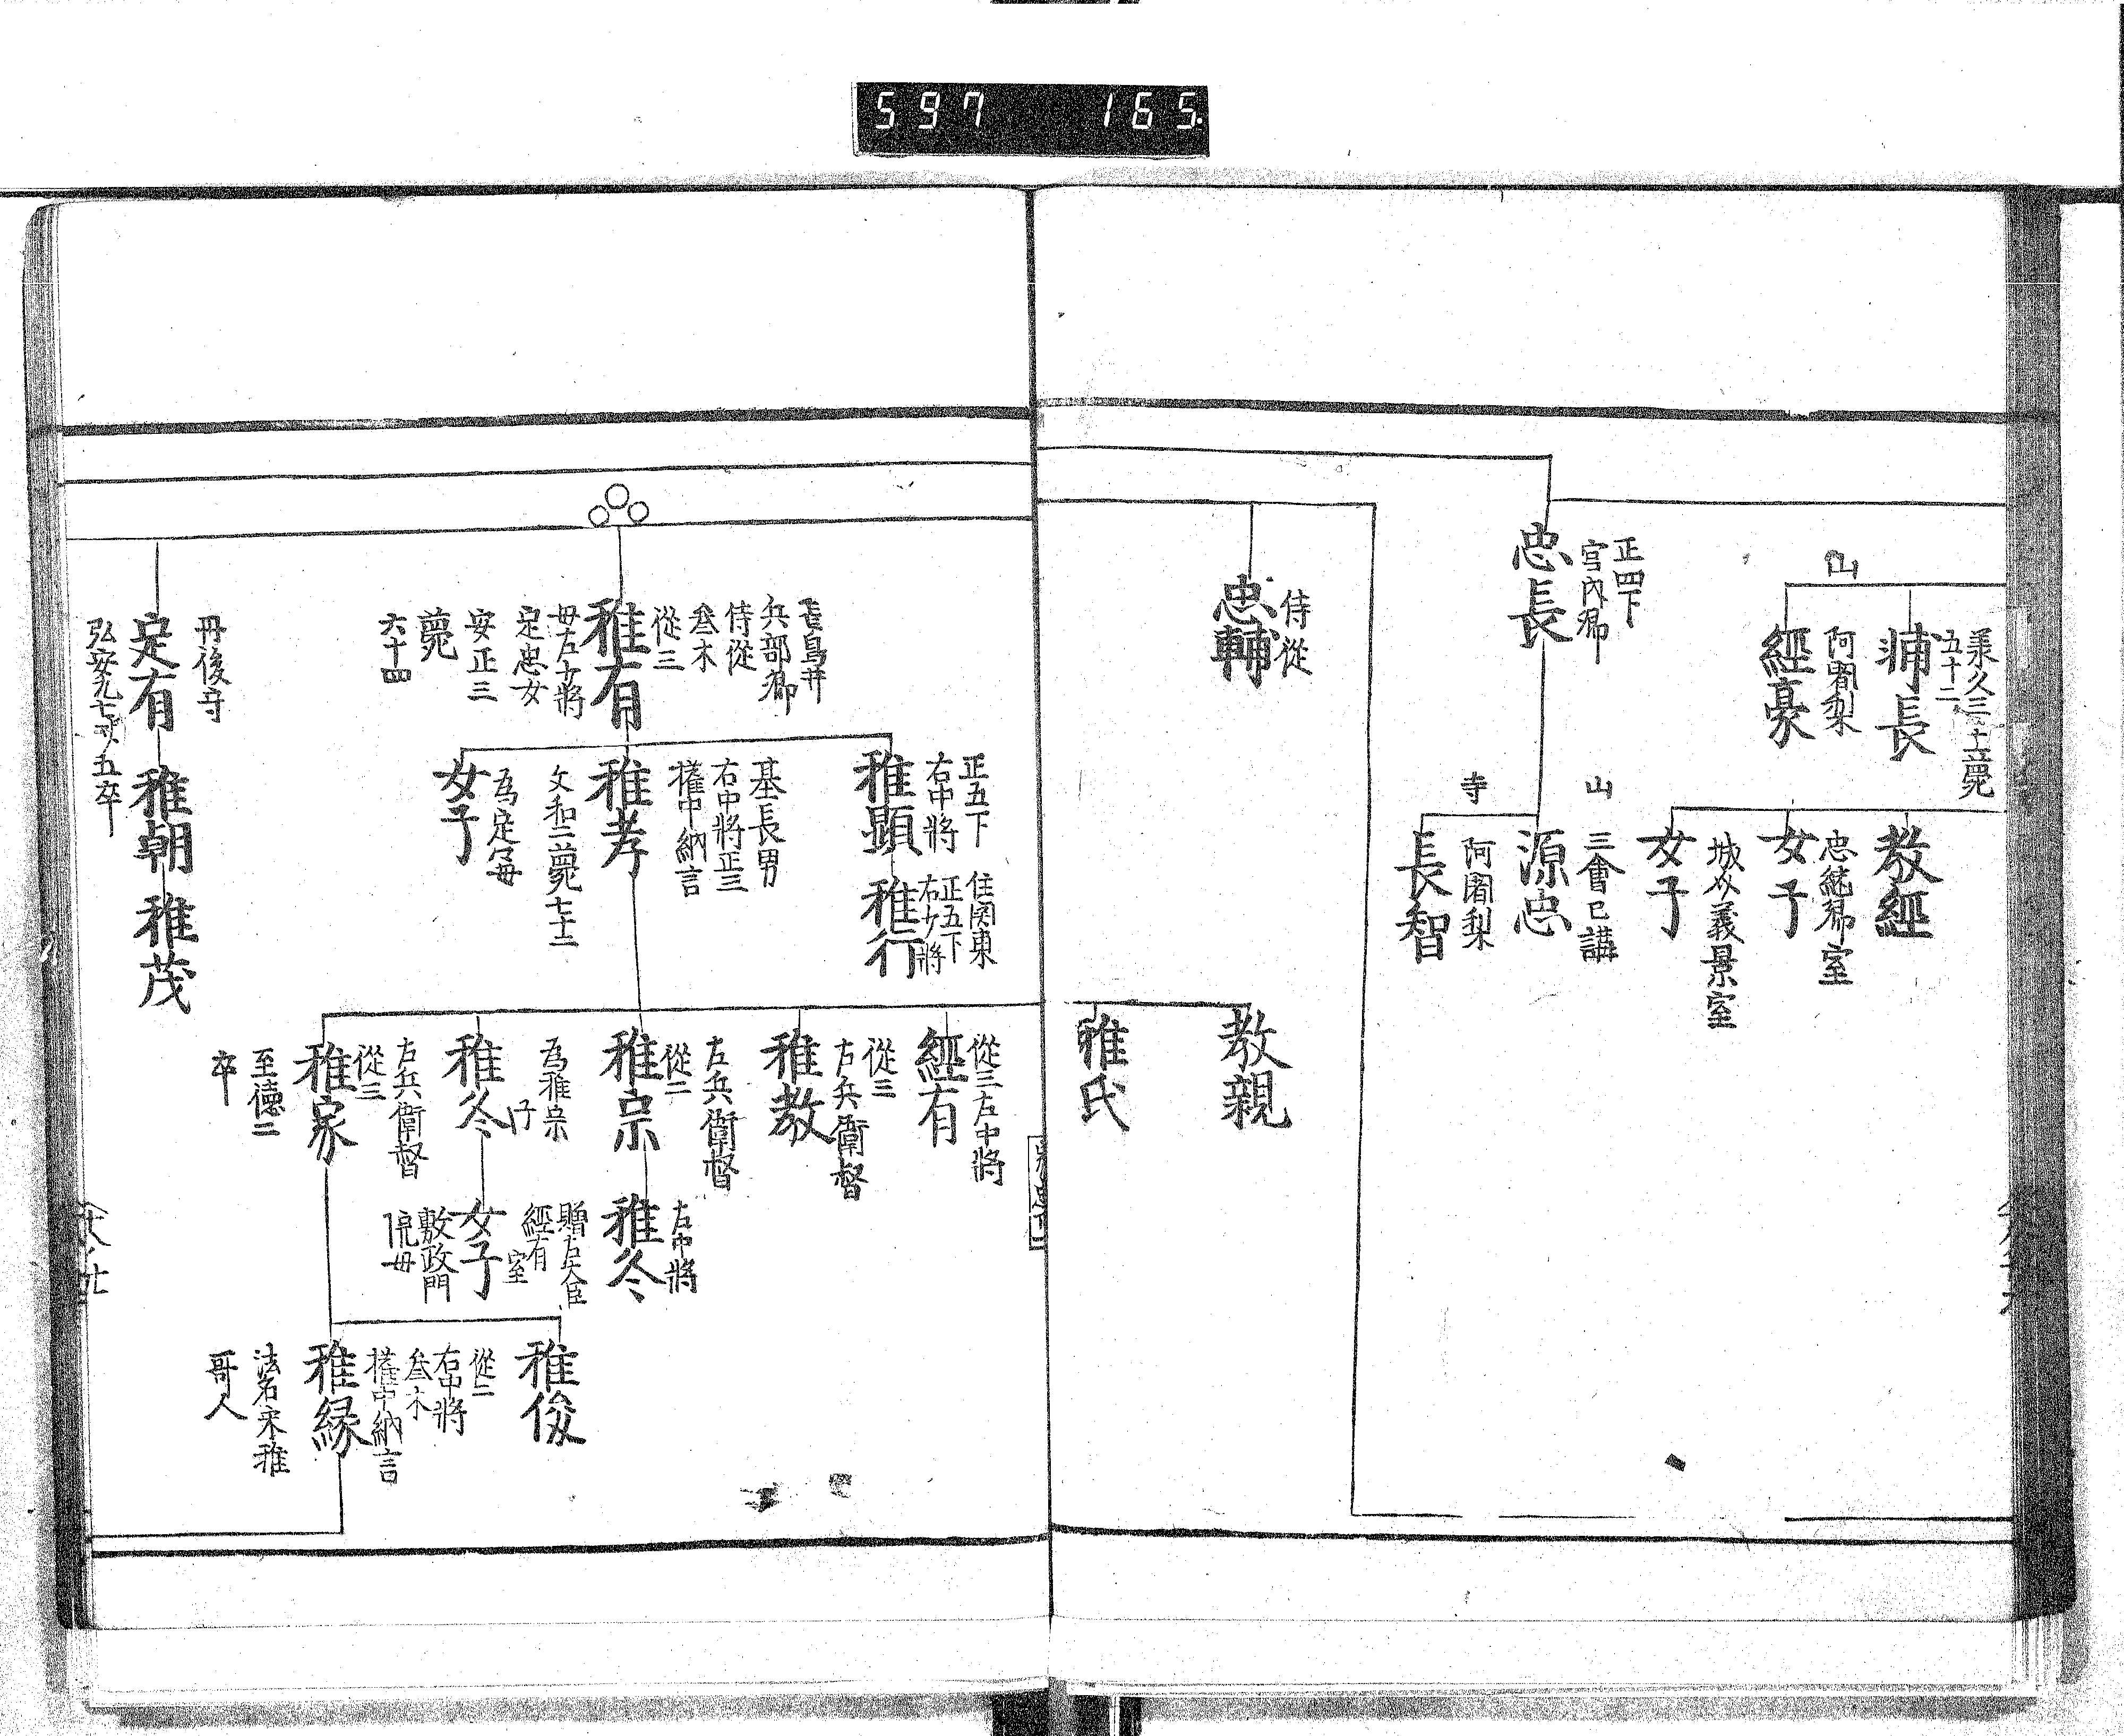 597 165.
五十二
山
經豪
阿闍梨
正四下
宮内卿
忠長
侍從
忠輔
教經
忠純卿室
女子
城外義景室
女子
山
三會已講
源忠
寺
阿闍梨
長智
教親
雅氏
兵部卿
侍從
叅木
從三
雅有
母左少將
定忠女
安正三
薨
六十四
丹後守
定有
雅朝
雅茂
正五下
右中將
雅顯
住関東
正五下
右少將
雅行
基長男
右中將正三
権中納言
雅孝
文和二薨七十二
女子
從三左中將
經有
從三
右兵衛督
雅教
左兵衛督
從二
雅宗
左中將
雅冬
為雅宗
子
雅冬
贈左大臣
經有
室
女子
敷政門
院母
右兵衛督
從三
雅家
至徳二
卒
雅俊
從二
右中將
叅木
権中納言
雅縁
法名宋雅
哥人